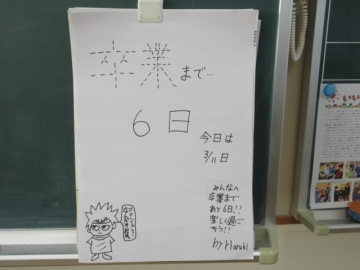 卒業まで…
6日
今日は
3/11日
みんなへ
卒業まで
あと6日!!
楽しく過ご
そう!!
by Haruki